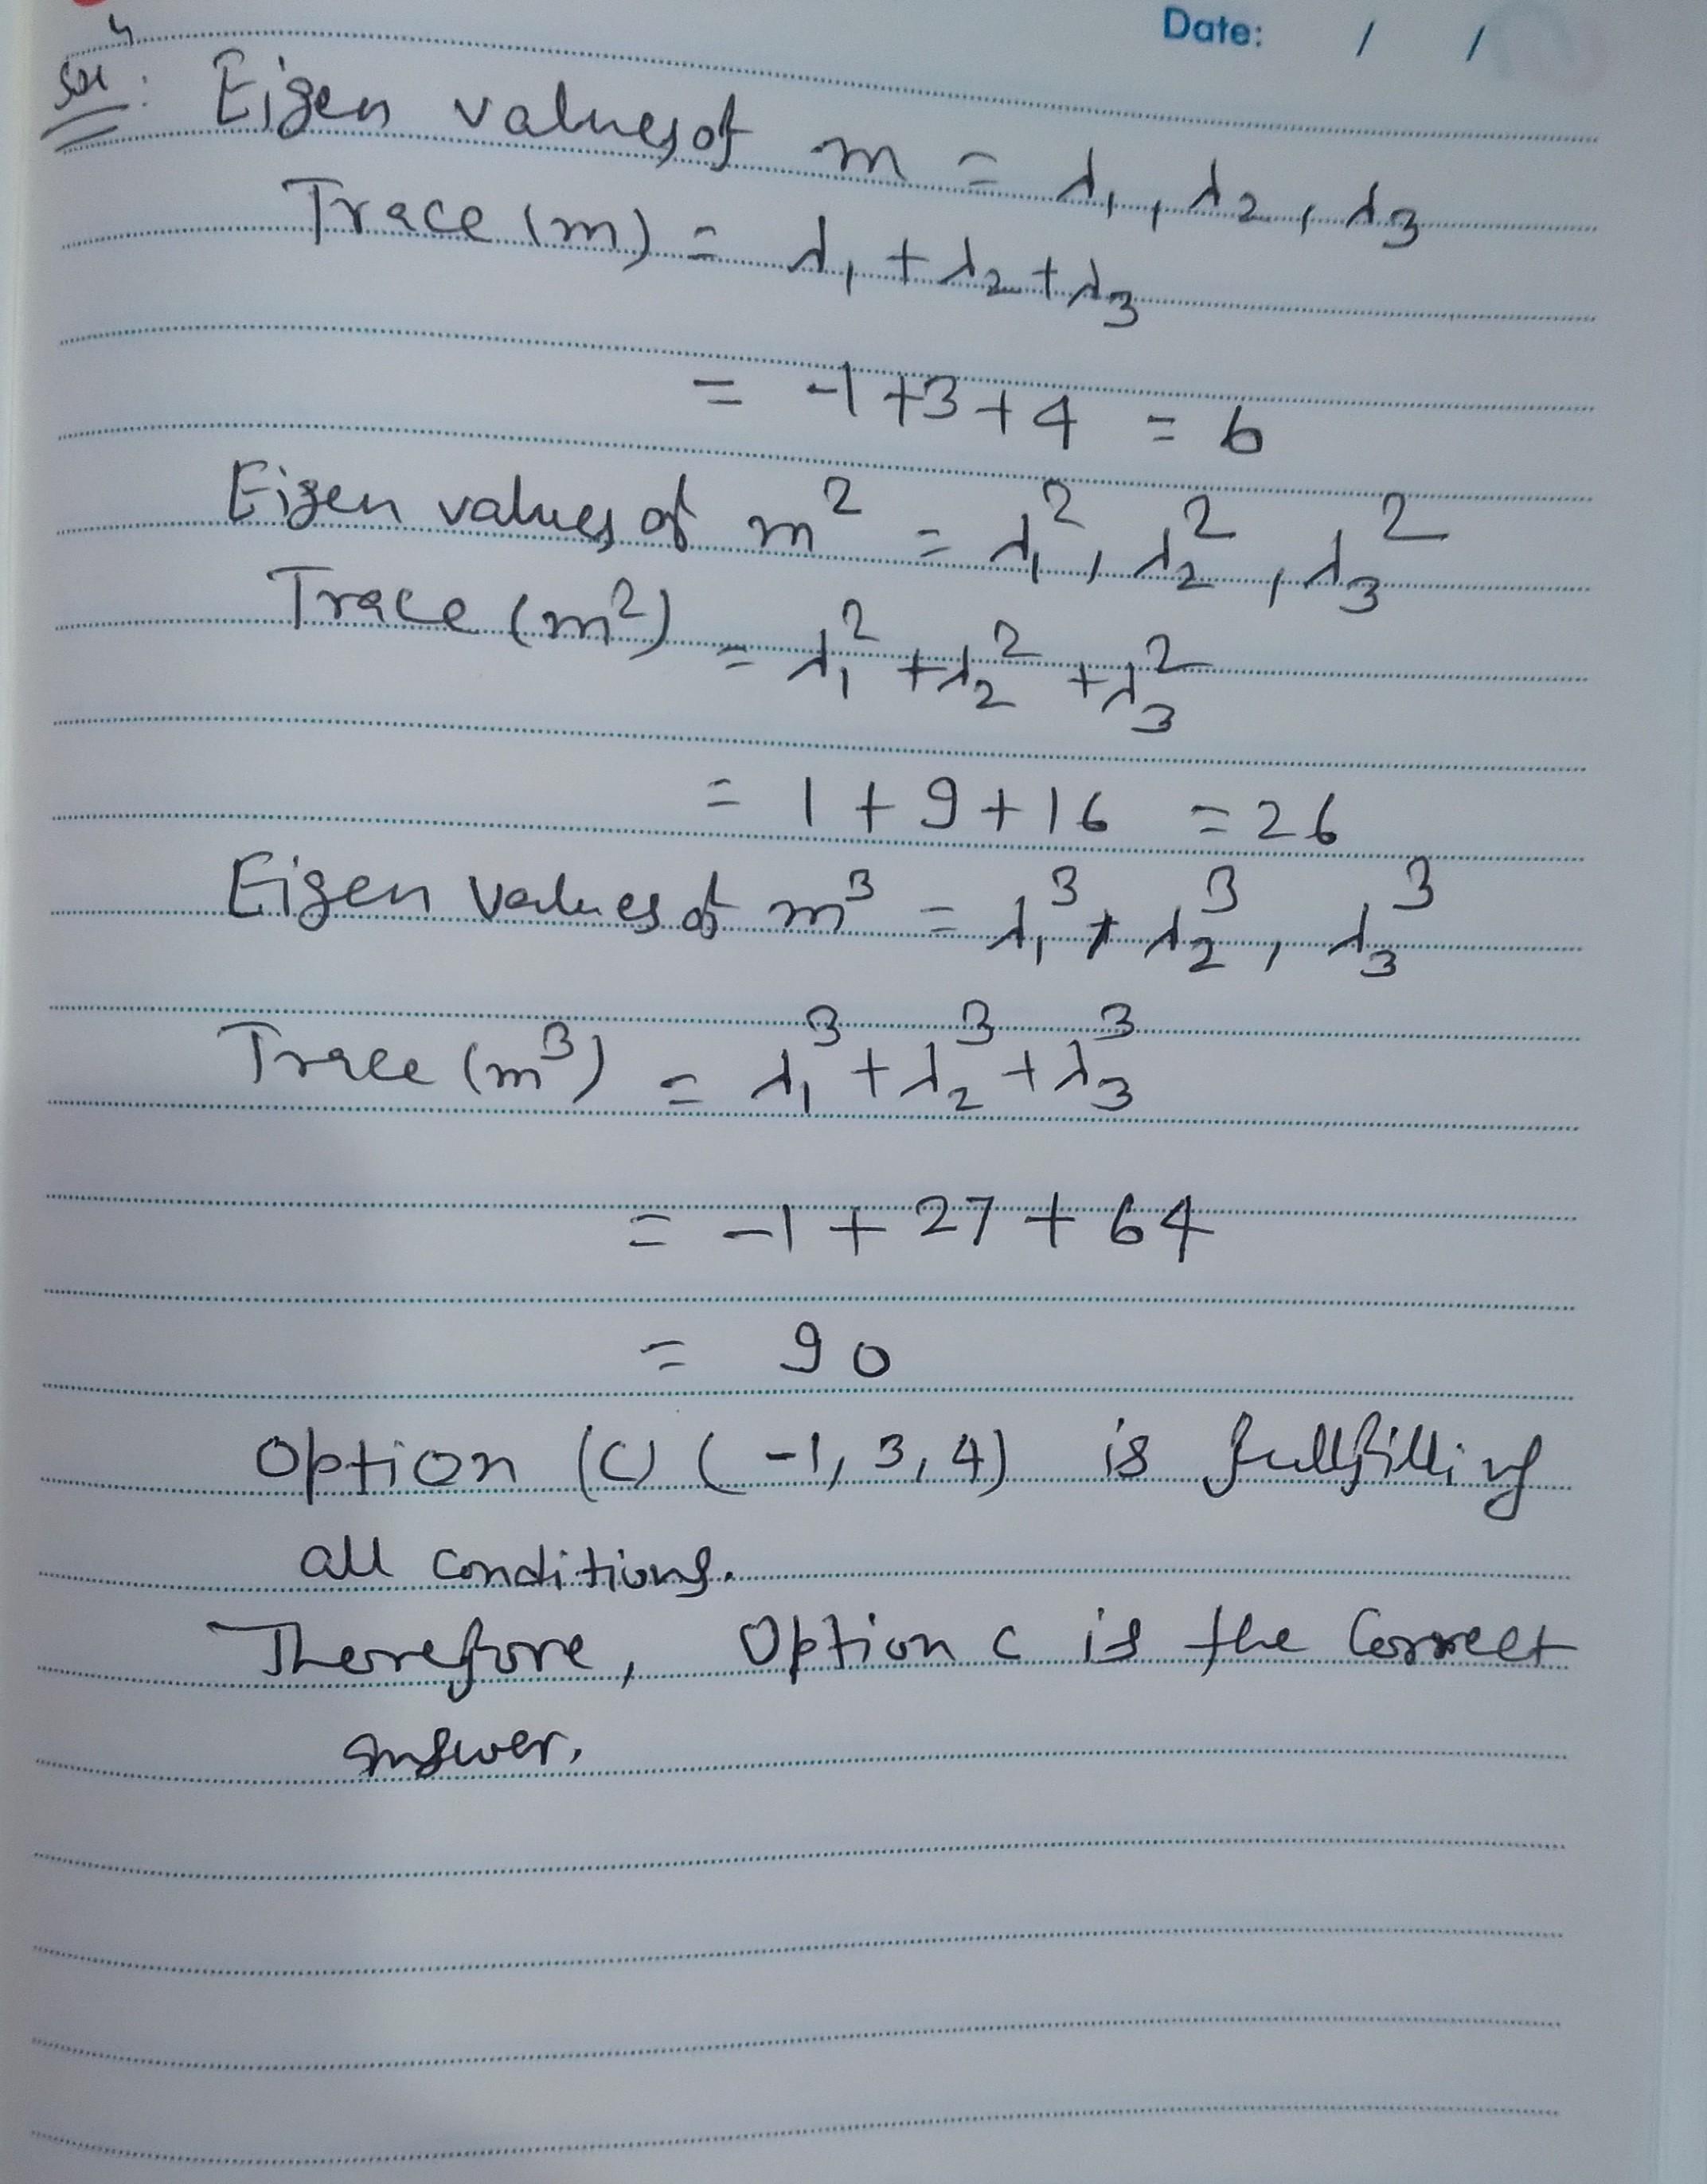 Date: / /
Soln: Eigen values of m = λ₁, λ₂, λ₃
Trace (m) = λ₁ + λ₂ + λ₃
= -1 + 3 + 4 = 6
Eigen values of m² = λ₁², λ₂², λ₃²
Trace (m²) = λ₁² + λ₂² + λ₃²
= 1 + 9 + 16 = 26
Eigen values of m³ = λ₁³, λ₂³, λ₃³
Trace (m³) = λ₁³ + λ₂³ + λ₃³
= -1 + 27 + 64
= 90
Option (C) (-1, 3, 4) is fullfilling
all conditions.
Therefore, Option C is the Correct
answer.